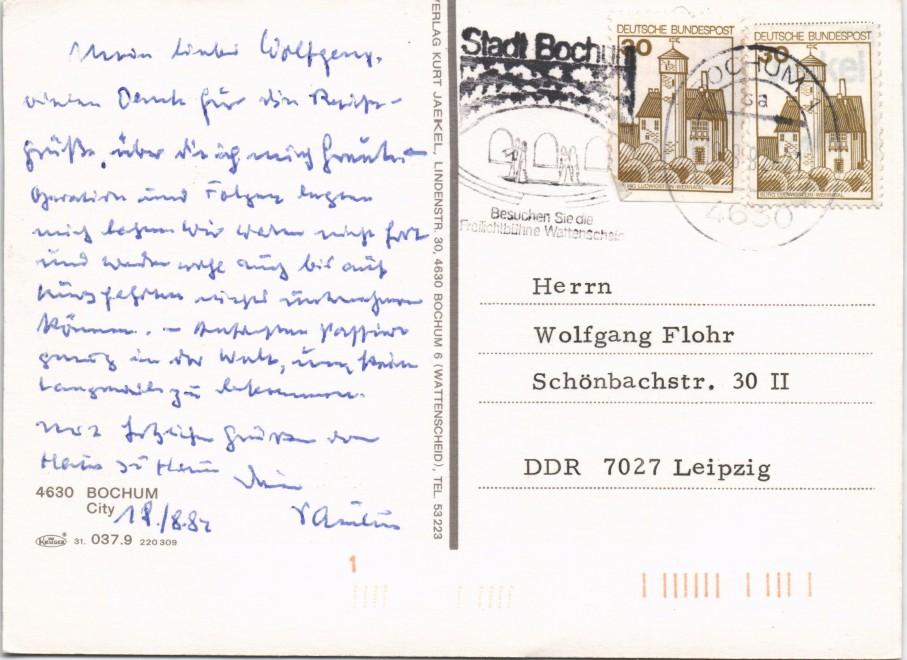 Mein lieber Wolfgang,
vielen Dank für die Reise-
grüße, über die ich mich freute.
Operation und Folgen legten
mich lahm. Wir waren nicht fort
und werden wohl auch bis auf
Kurzfahrten nichts unternehmen
können. – Ansonsten passiert
genug in der Welt, um keine
Langeweile zu bekommen.
Mit herzlichen Grüßen von
Haus zu Haus Dein
4630 BOCHUM
City 18./8.82
KRÜGER 31. 037.9 220309
VERLAG KURT JAEKEL, LINDENSTR. 30, 4630 BOCHUM 6 (WATTENSCHEID), TEL. 53223
Stadt Bochum
Besuchen Sie die
Freilichtbühne Wattenscheid
DEUTSCHE BUNDESPOST
30
DEUTSCHE BUNDESPOST
30
BOCHUM 1
sa
4630
Herrn
Wolfgang Flohr
Schönbachstr. 30 II
DDR 7027 Leipzig
1